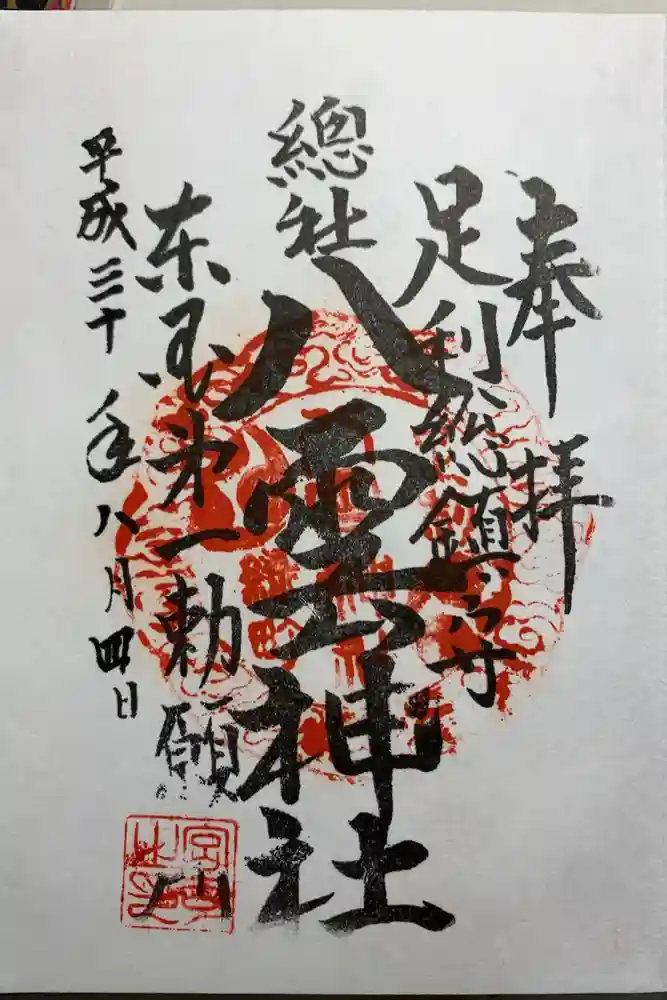 奉拝
足利総鎮守
總社
八雲神社
東国第一勅願
平成三十年八月四日